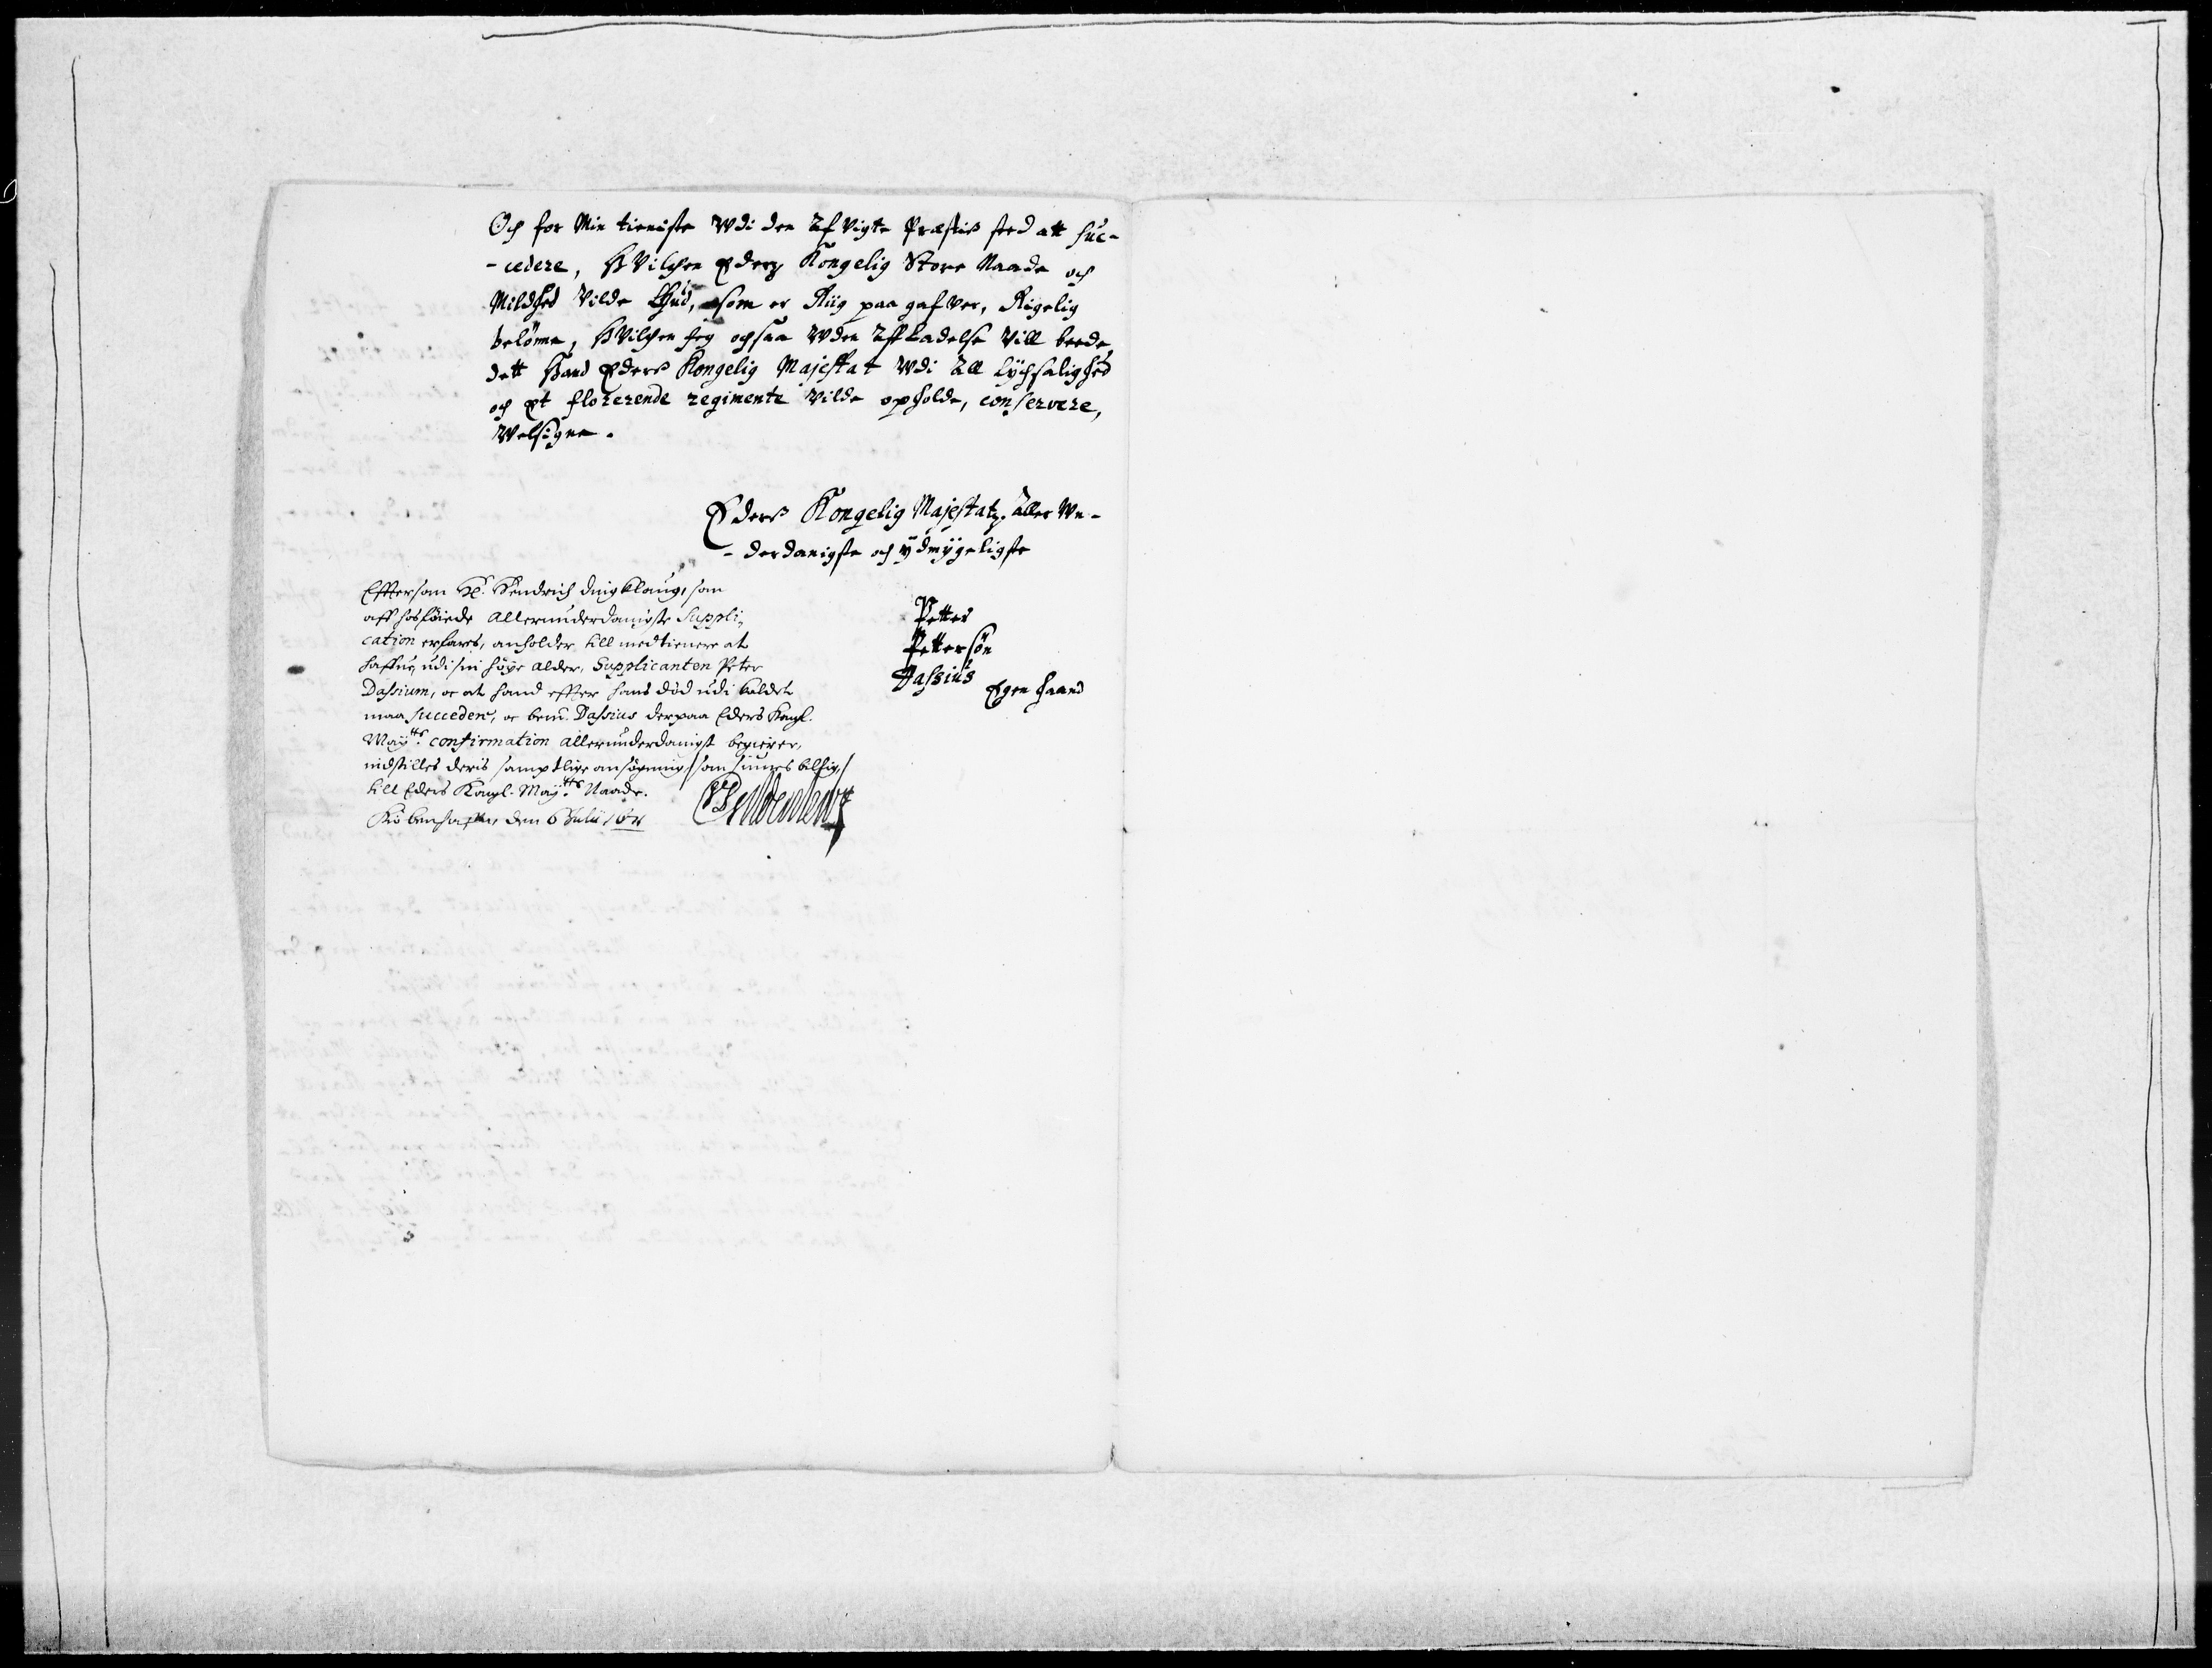 Och for Min tieniste Wdi den Afvigte Præstis sted att suc-
-cedere, HVilchen Eders Kongelig Store Naade och
Mildhed Vilde Ghud, som er Riig paa gafver, Rigelig
belönne, HVilchen Jeg ochsaa Wden Affladelse Vill beede,
dett Hand Eders Kongelig Majestat Wdi All Lychsalighed
och Et florerende regimente Vilde opholde, conservere,
Welsigne.
Eders Kongelig Majestatz. Aller Wn-
-derdanigste och ydmygeligste
Petter
Pettersön
Dassius
Egen haand
Effttersom Hr. Hendrich som
aff hosföiede allerunderdanigste Suppli-
cation erfares, anholder till medtienere at
haffue, udi sin höye alder, Supplicanten Peter
Dassium, oc at hand effter hans död udi kaldet
maa succedere, oc bem. Dassius derpaa Eders Kongl.
Maytts. confirmation allerunderdanigst begierer,
indstilles deris samptlige ansögning som siunes billig,
till Eders Kongl. Maytts. Naade.
Kiöbenhaffn, den 6 Julii